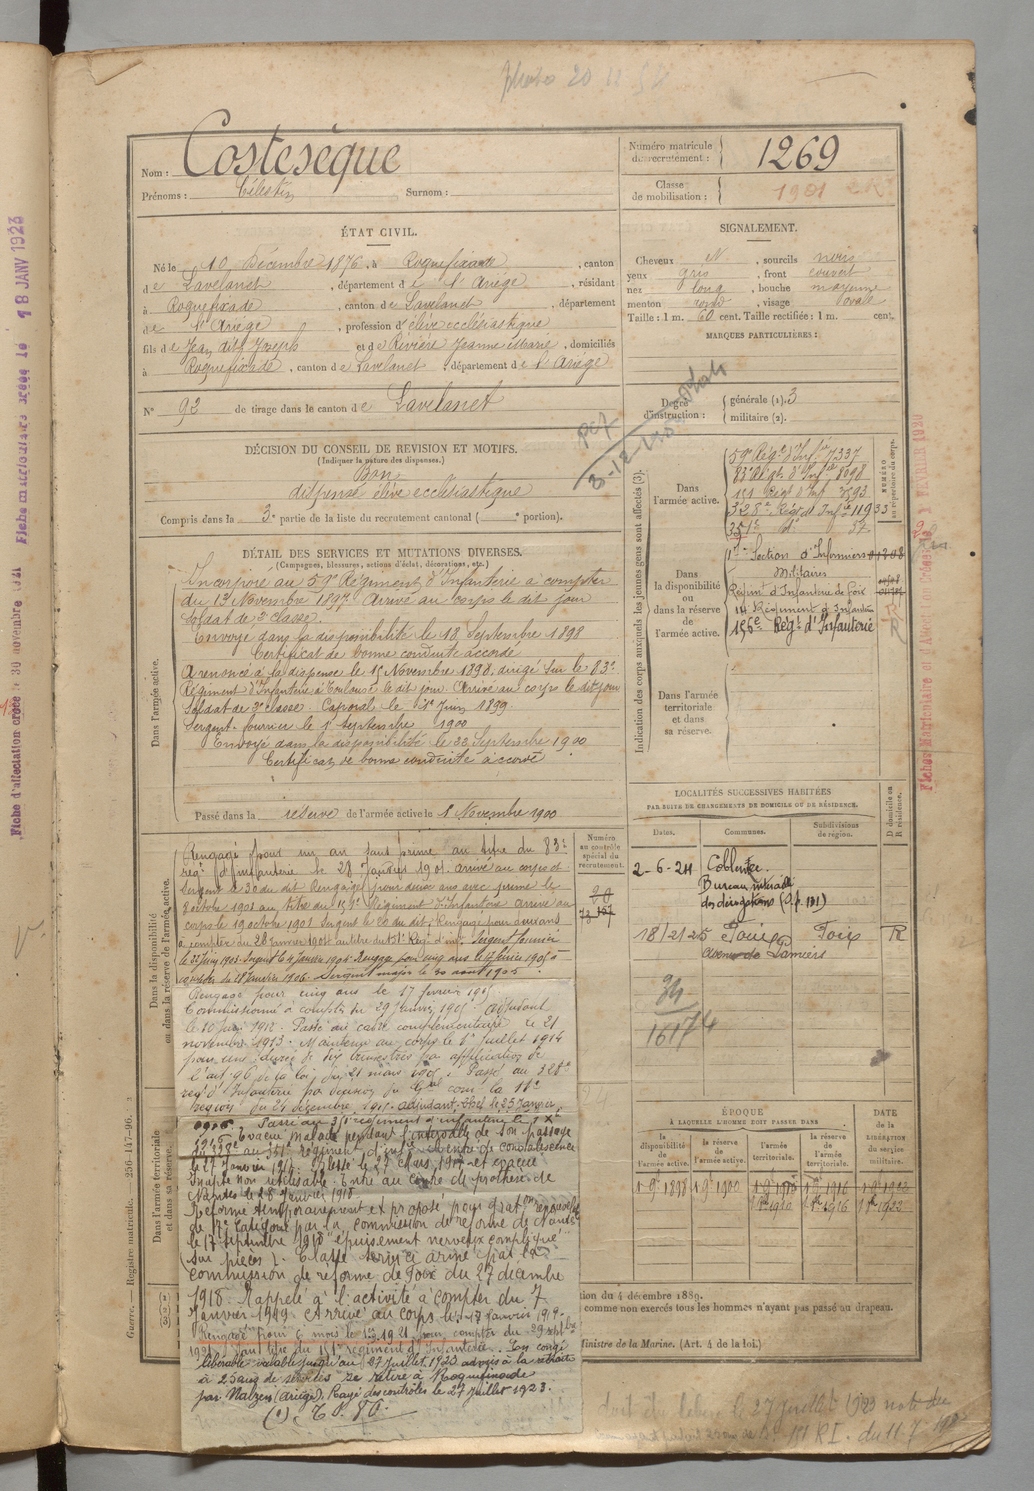 Nom : Costeseque
Prénoms : Célestin Surnom :
Numéro matricule
du recrutement : 1269
Classe
de mobilisation : 1901
ÉTAT CIVIL.
Né le 10 Décembre 1876, à Roquefixade, canton
de Lavelanet, département de l'Ariège, résidant
à Roquefixade, canton de Lavelanet, département
de l'Ariège, profession d'élève ecclésiastique
fils de Jean dit Joseph et de Rivière Jeanne Marie, domiciliés
à Roquefixade, canton de Lavelanet, département de l'Ariège
N° 92 de tirage dans le canton de Lavelanet
SIGNALEMENT.
Cheveux N, sourcils noirs
yeux gris, front couvert
nez long, bouche moyenne
menton rond, visage ovale
Taille : 1 m. 60 cent. Taille rectifiée : 1 m. cent.
MARQUES PARTICULIÈRES :
Degré
d'instruction :
générale (1). 3
militaire (2).
DÉCISION DU CONSEIL DE REVISION ET MOTIFS.
(Indiquer la nature des dispenses.)
Bon
dispensé élève ecclésiastique
Compris dans la 3e partie de la liste du recrutement cantonal ( e portion).
DÉTAIL DES SERVICES ET MUTATIONS DIVERSES.
(Campagnes, blessures, actions d'éclat, décorations, etc.)
Dans l'armée active.
Incorporé au 59e Régiment d'Infanterie à compter
du 13 Novembre 1897. Arrivé au corps le dit jour
soldat de 2e classe.
Envoyé dans la disponibilité le 18 Septembre 1898
Certificat de bonne conduite accordé
A renoncé à la dispense le 15 Novembre 1898, dirigé sur le 83e
Régiment d'Infanterie à Toulouse le dit jour. Arrivé au corps le dit jour
Soldat de 2e classe. Caporal le Juin 1899
Sergent-fourrier le 1er septembre 1900
Envoyé dans la disponibilité le 22 Septembre 1900
Certificat de bonne conduite accordé
Passé dans la réserve de l'armée active le 1 Novembre 1900
Dans la disponibilité
ou dans la réserve de l'armée active.
Rengagé pour un an sans prime au titre du 83e
régt d'infanterie le 28 Janvier 1901. arrivé au corps et
Sergent le 30 du dit. Rengagé pour deux ans avec prime le
8 octobre 1901 au titre du 151e Régiment d'Infanterie arrivé au
corps le 19 octobre 1901. Sergent le 20 du dit. Rengagé pour deux ans
à compter du 28 janvier 1904 au titre du 151e Régt d'inf. Sergent fourrier
Rengagé pour cinq ans le 17 février 1905 à
compter du 28 Janvier 1906. Sergent major le 20 août 1905
Rengagé pour cinq ans le 17 février 1905
Commissionné à compter du 29 janvier adjudant
le 10 Juin 1912. Passé au cadre complémentaire le 21
novembre 1913. Maintenu au corps le 1er juillet 1914
pour une durée de six trimestres par application de
l'art. 96 de la loi du 21 mars 1905. Passé au 328e
régt d'Infanterie par décision du Gal com. la 11e
Région du 24 décembre 1915. adjudant-chef le 25 Janvier
1916. Passé au 351e régiment d'infanterie le 1er Xbre
Évacué malade pendant l'intervalle de son passage
du 328e au 351e Régiment d'infie. Rentré de convalescence
le 27 Janvier 1917. Blessé le 27 Mars 1917 et évacué
Inapte non utilisable. Entré au centre de prothèse de
Nantes le 28 Janvier 1918
Réformé temporairement et proposé pour gration renouvelable
de 7e catégorie par la commission de réforme de Nantes
le 17 septembre 1918 "épuisement nerveux compliqué"
(sur pièces). Classé service armé par la
commission de réforme de Foix du 27 décembre
1918. Rappelé à l'activité à compter du 7
Janvier 1919. Arrivé au corps le 17 janvier 1919.
Rengagé pour 6 mois le 1921 pour compter du 29 septbre
1921 au titre du 151e régiment d'Infanterie. En congé
libérable valable jusqu'au 27 Juillet 1923 admis à la retraite
à 25 ans de services se retire à Roquefixade
par Nalzen (Ariège). Rayé des contrôles le 27 Juillet 1923.
Dans l'armée territoriale
et dans sa réserve.
Numéro
au contrôle
spécial du
recrutement.
Indication des corps auxquels les jeunes gens sont affectés (3).
Dans
l'armée active.
59e Régt d'Infie 7337
83e Régt d'Infie 8298
151 Régt d'Inf 3593
328e Régt d'Infie 11933
351e do 37
NUMÉRO
au répertoire du corps.
Dans
la disponibilité
ou dans
la réserve de
l'armée active.
1re Section d'Infirmiers
Militaires
Régimt d'Infanterie de Foix
14 Régiment d'Infanterie
156e Régt d'Infanterie
Dans l'armée
territoriale
et dans
sa réserve.
LOCALITÉS SUCCESSIVES HABITÉES
PAR SUITE DE CHANGEMENTS DE DOMICILE OU DE RÉSIDENCE.
Dates. Communes. Subdivisions
de région.
D domicile ou
R résidence.
2-6-24 Coblentz
Bureau interallié
des dérogations (S.p. 151)
18/2/25 Foix Foix R
avenue de Pamiers
34
16174
ÉPOQUE
À LAQUELLE L'HOMME DOIT PASSER DANS
la
disponibilité
de
l'armée active.
la réserve
de
l'armée active.
l'armée
territoriale.
la réserve
de
l'armée
territoriale.
DATE
de la
LIBÉRATION
du service
militaire.
tion du 4 décembre 1889.
comme non exercés tous les hommes n'ayant pas passé au drapeau.
Ministre de la Marine. (Art. 4 de la loi.)
doit être libéré le 27 juillet 1923 note du
151 R I. du 11 7
Guerre. — Registre matricule. — 256-147-96.
Fiche d'affectation créée le 30 novembre 1921
Fiche matriculaire créée le 18 JANV 1923